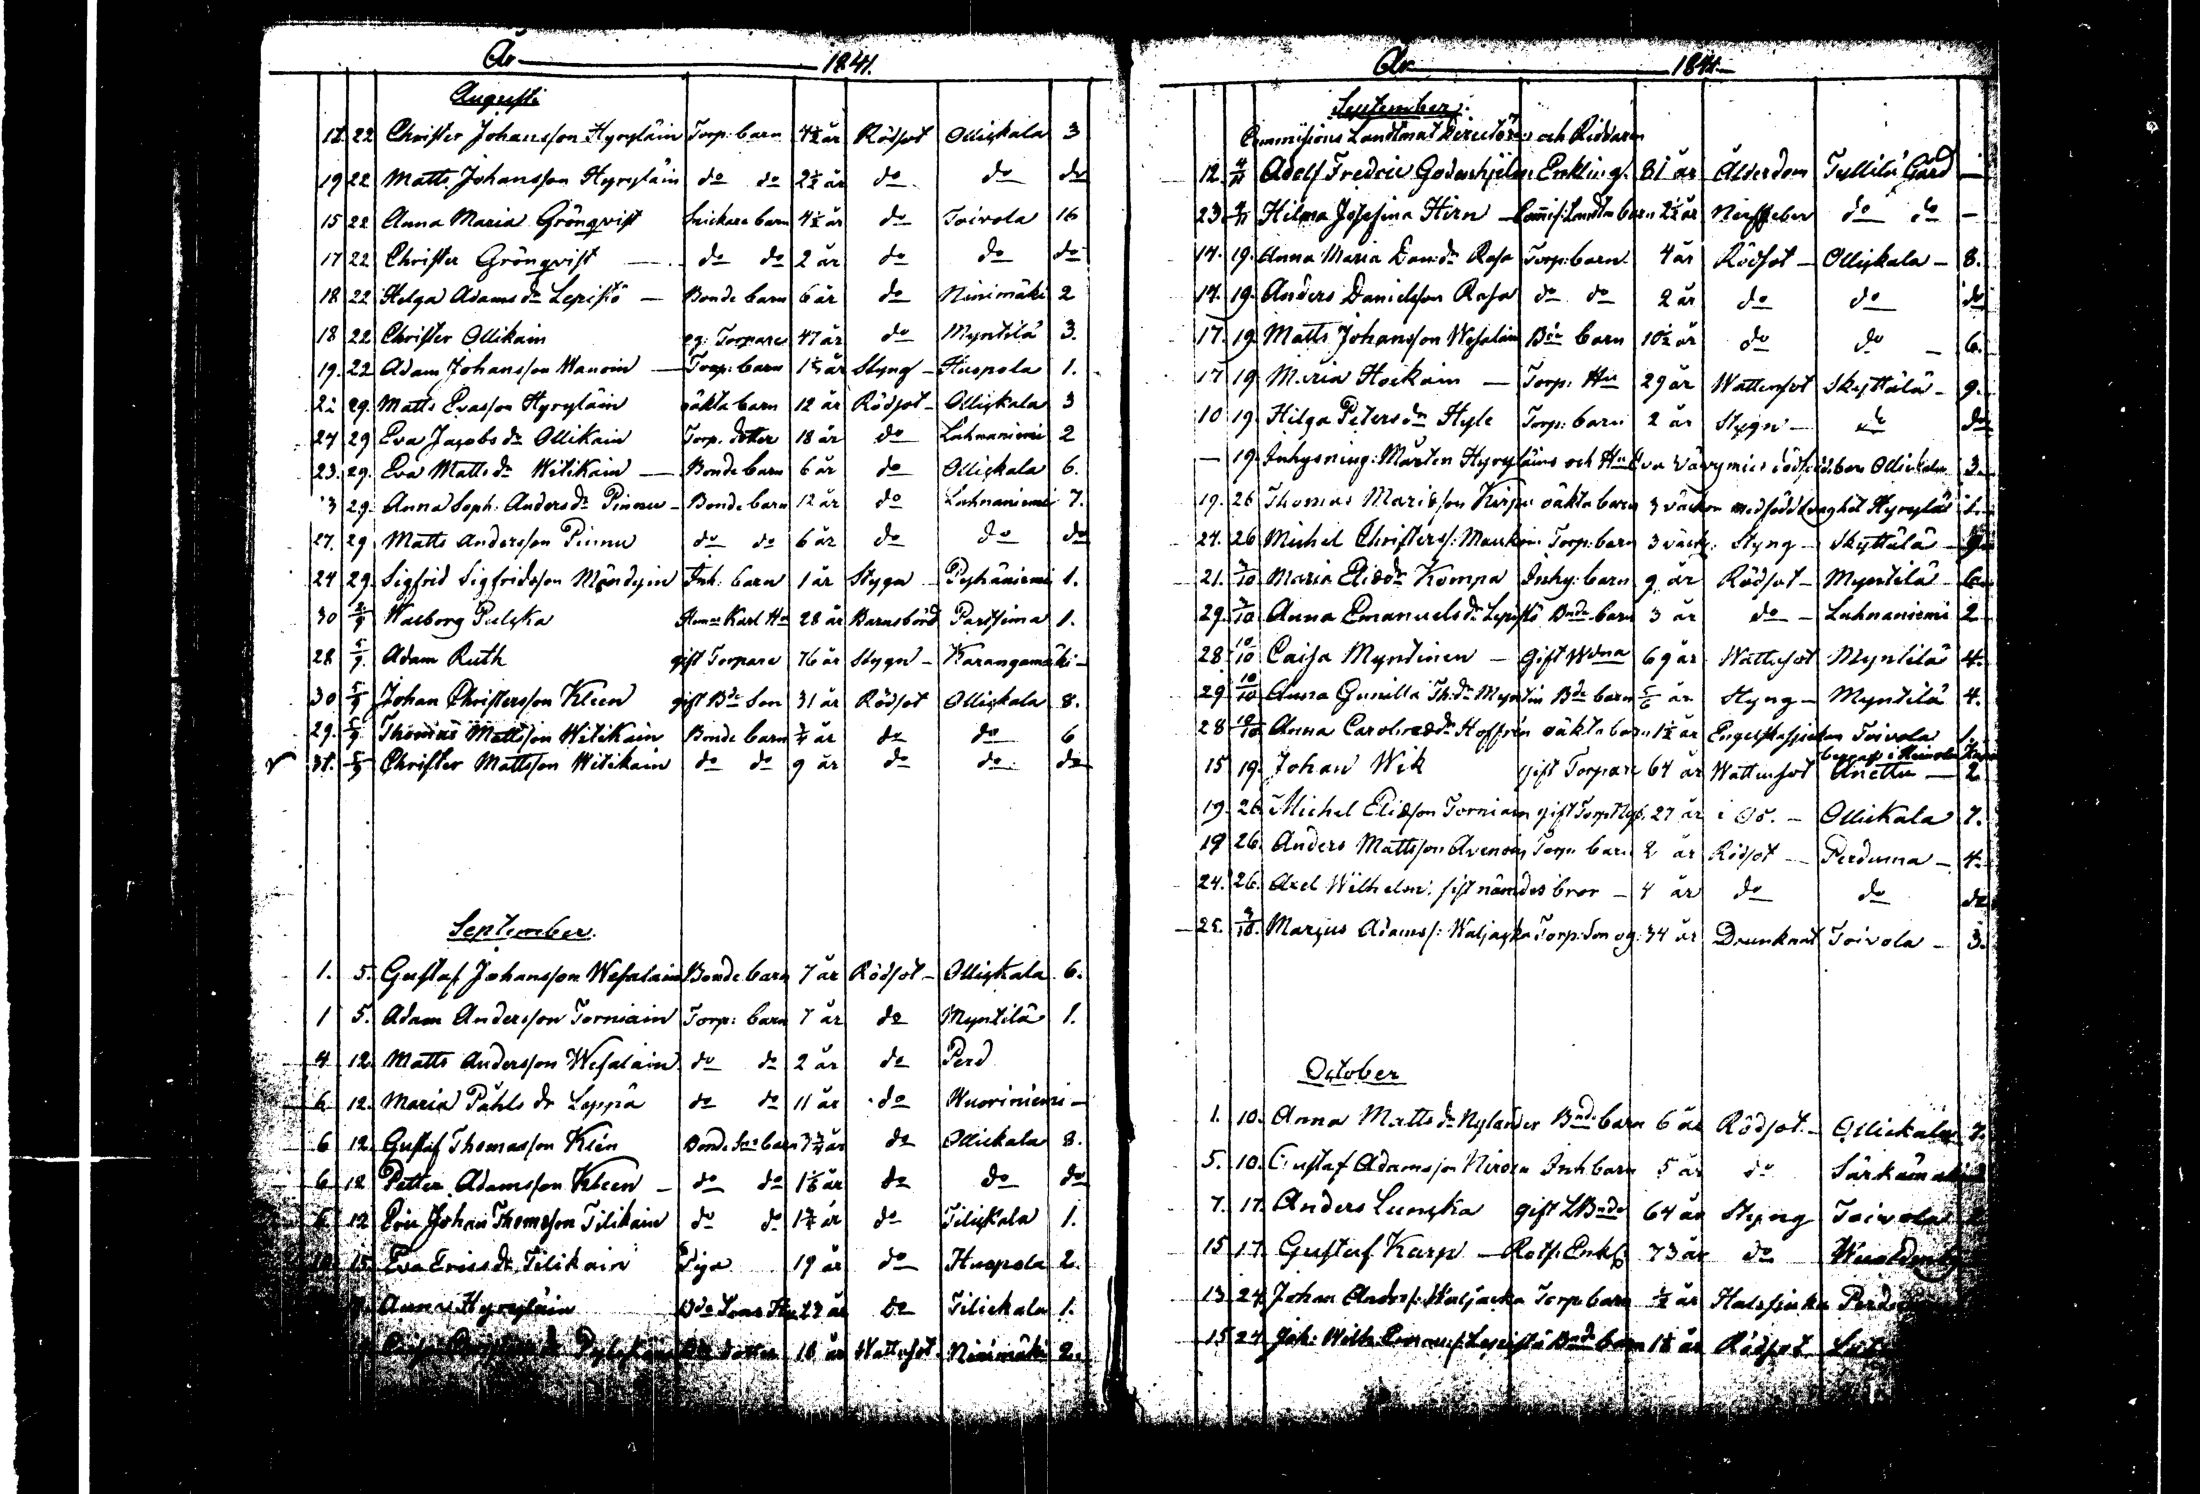 År 1841.
Augusti
18. 22 Christer Johansson Hyryläin Torp: barn 4½ år Rödsot Ollickala 3
19 22 Matts Johansson Hyryläin do do 2½ år do do do
15 22 Anna Maria Grönqvist Snickare barn 4½ år do Toivola 16
17 22 Christer Grönqvist do do 2 år do do do
18 22 Helga Adams dr Lepistö Bonde barn 6 år do Ninimäki 2
18 22 Christer Ollikain Torpare 47 år do Myntilä 3.
19. 22 Adam Johansson Manoin Torp: barn år Styng Huopola 1.
22 29. Matts Evasson Hyryläin oäkta barn 12 år Rödsot Ollickala 3
27 29 Eva Jacobs dr Ollikain Torp. dotter 18 år do Lahnaniemi 2
23. 29. Eva Matts dr Witikain Bonde barn 6 år do Ollickala 6.
3 29. Anna Soph. Anders dr Pinnu Bonde barn 12 år do Lahnaniemi 7.
27. 29. Matts Andersson Pinnu do do 6 år do do do
24 29. Sigfrid Sigfridsson Mändyin Inh: barn 1 år Stygn 1.
30 5/9 Walborg Pulcka 28 år Barnsbörd 1.
28 5/9. Adam Ruth gift Torpare 76 år Stygn Karangamäki
30 5/9 Johan Christersson Kleen gift Bde Son 31 år Rödsot Ollickala 8.
29. 5/9 Thomas Mattsson Witikain Bonde barn ¾ år do do 6
31. 5/9 Christer Mattsson Witikain do do 9 år do do do
September.
1. 5. Gustaf Johansson Wesalain Bonde barn 7 år Rödsot Ollickala 6.
1 5. Adam Andersson Torniain Torp: barn 7 år do Myntilä 1.
4 12. Matts Andersson Wesalain do do 2 år do Perd
6 12. Maria Påhls dr Leppä do do 11 år do Wuoriniemi
6 12. Gustaf Thomasson Klén Bonde Sons barn 3¾ år do Ollickala 8.
6 12 Petter Adamsson Kleen do do år do do do
12 Eric Johan Thomsson Tilikain do do år do Tilickala 1.
15. Eva Erics dr Tilikain Piga 19 år do Huopola 2.
Anna Hyryläin Bde Sons Hu 27 år do Tilickala 1.
dotter 18 år Wattusot Ninimäki 2.
År 1841
September.
Commissions Landtmät Directören och Riddaren
12. Adolf Fredric Godenhjelm Enkling. 81 år Ålderdom Tullila Gård
23. Hilma Josefina Hirn Commis: Landtm barn 2½ år do do
14. 19. Anna Maria Dan: dr Rasa Torp: barn 4 år Rödsot Ollickala 8.
14. 19. Anders Danielsson Rasa do do 2 år do do do
17. 19 Matts Johansson Wesalain Bde barn 10½ år do do 6.
17 19. Maria Hockain Torp: Hu 29 år Wattusot Skyttälä 9.
10 19. Helga Peters dr Hyle Torp: barn 2 år Stygn do do
19. Inhysning: Mårten Hyryläins och Hu Eva dödfödt barn Ollickala 3.
19. 26 Thomas oäkta barn 3 veckor medfödd svaghet Hyrylä 1.
24. 26 Michel Christers: Torp: barn 3 veck: Styng Skyttälä
21. 3/10 Maria Elias dr Kompa Inhy: barn 9 år Rödsot Myntilä 6.
29. 3/10 Anna Emanuels dr Lepistö Bnde barn 3 år do Lahnaniemi 2
28 10/10 Caisa Myntinen Gift 69 år Wattusot Myntilä 4.
29 10/10 Anna Gunilla Th: dr Myntin Bde barn 5/6 år Styng Myntilä 4.
28 10/10 Anna Carolina dr Hoffrén oäkta barn 1½ år Engelska sjukan Toivola 1.
15 19. Johan Wik gift Torpare 64 år Wattusot Anettu 2.
begraf: i Heinola
19. 26. Michel Eliasson Torniain gift 27 år i do. Ollickala 7.
19 26. Anders Mattsson Avenoin Torp: barn 2 år Rödsot Perduma 4.
24. 26. Axel Wilhelm: sist nämdes bror 4 år do do do
25. 3/10. Marcus Adams: Waljacka Torp: Son og: 34 år Drunknat Toivola 3.
October
1. 10. Anna Matts dr Nylander Bnde barn 6 år Rödsot Ollickala 7.
5. 10. Gustaf Adamsson Inh barn 5 år do Särkämäki
7. 17. Anders gift 64 år Styng Toivola 2
15 17. Gustaf Karp Rotf: Enkl: 73 år do
13 24. Johan Anders: Waljacka Torp: barn ½ år Halssjuka
15 24 Joh: Wilh: Emanu: Lepistö Bnde barn år Rödsot